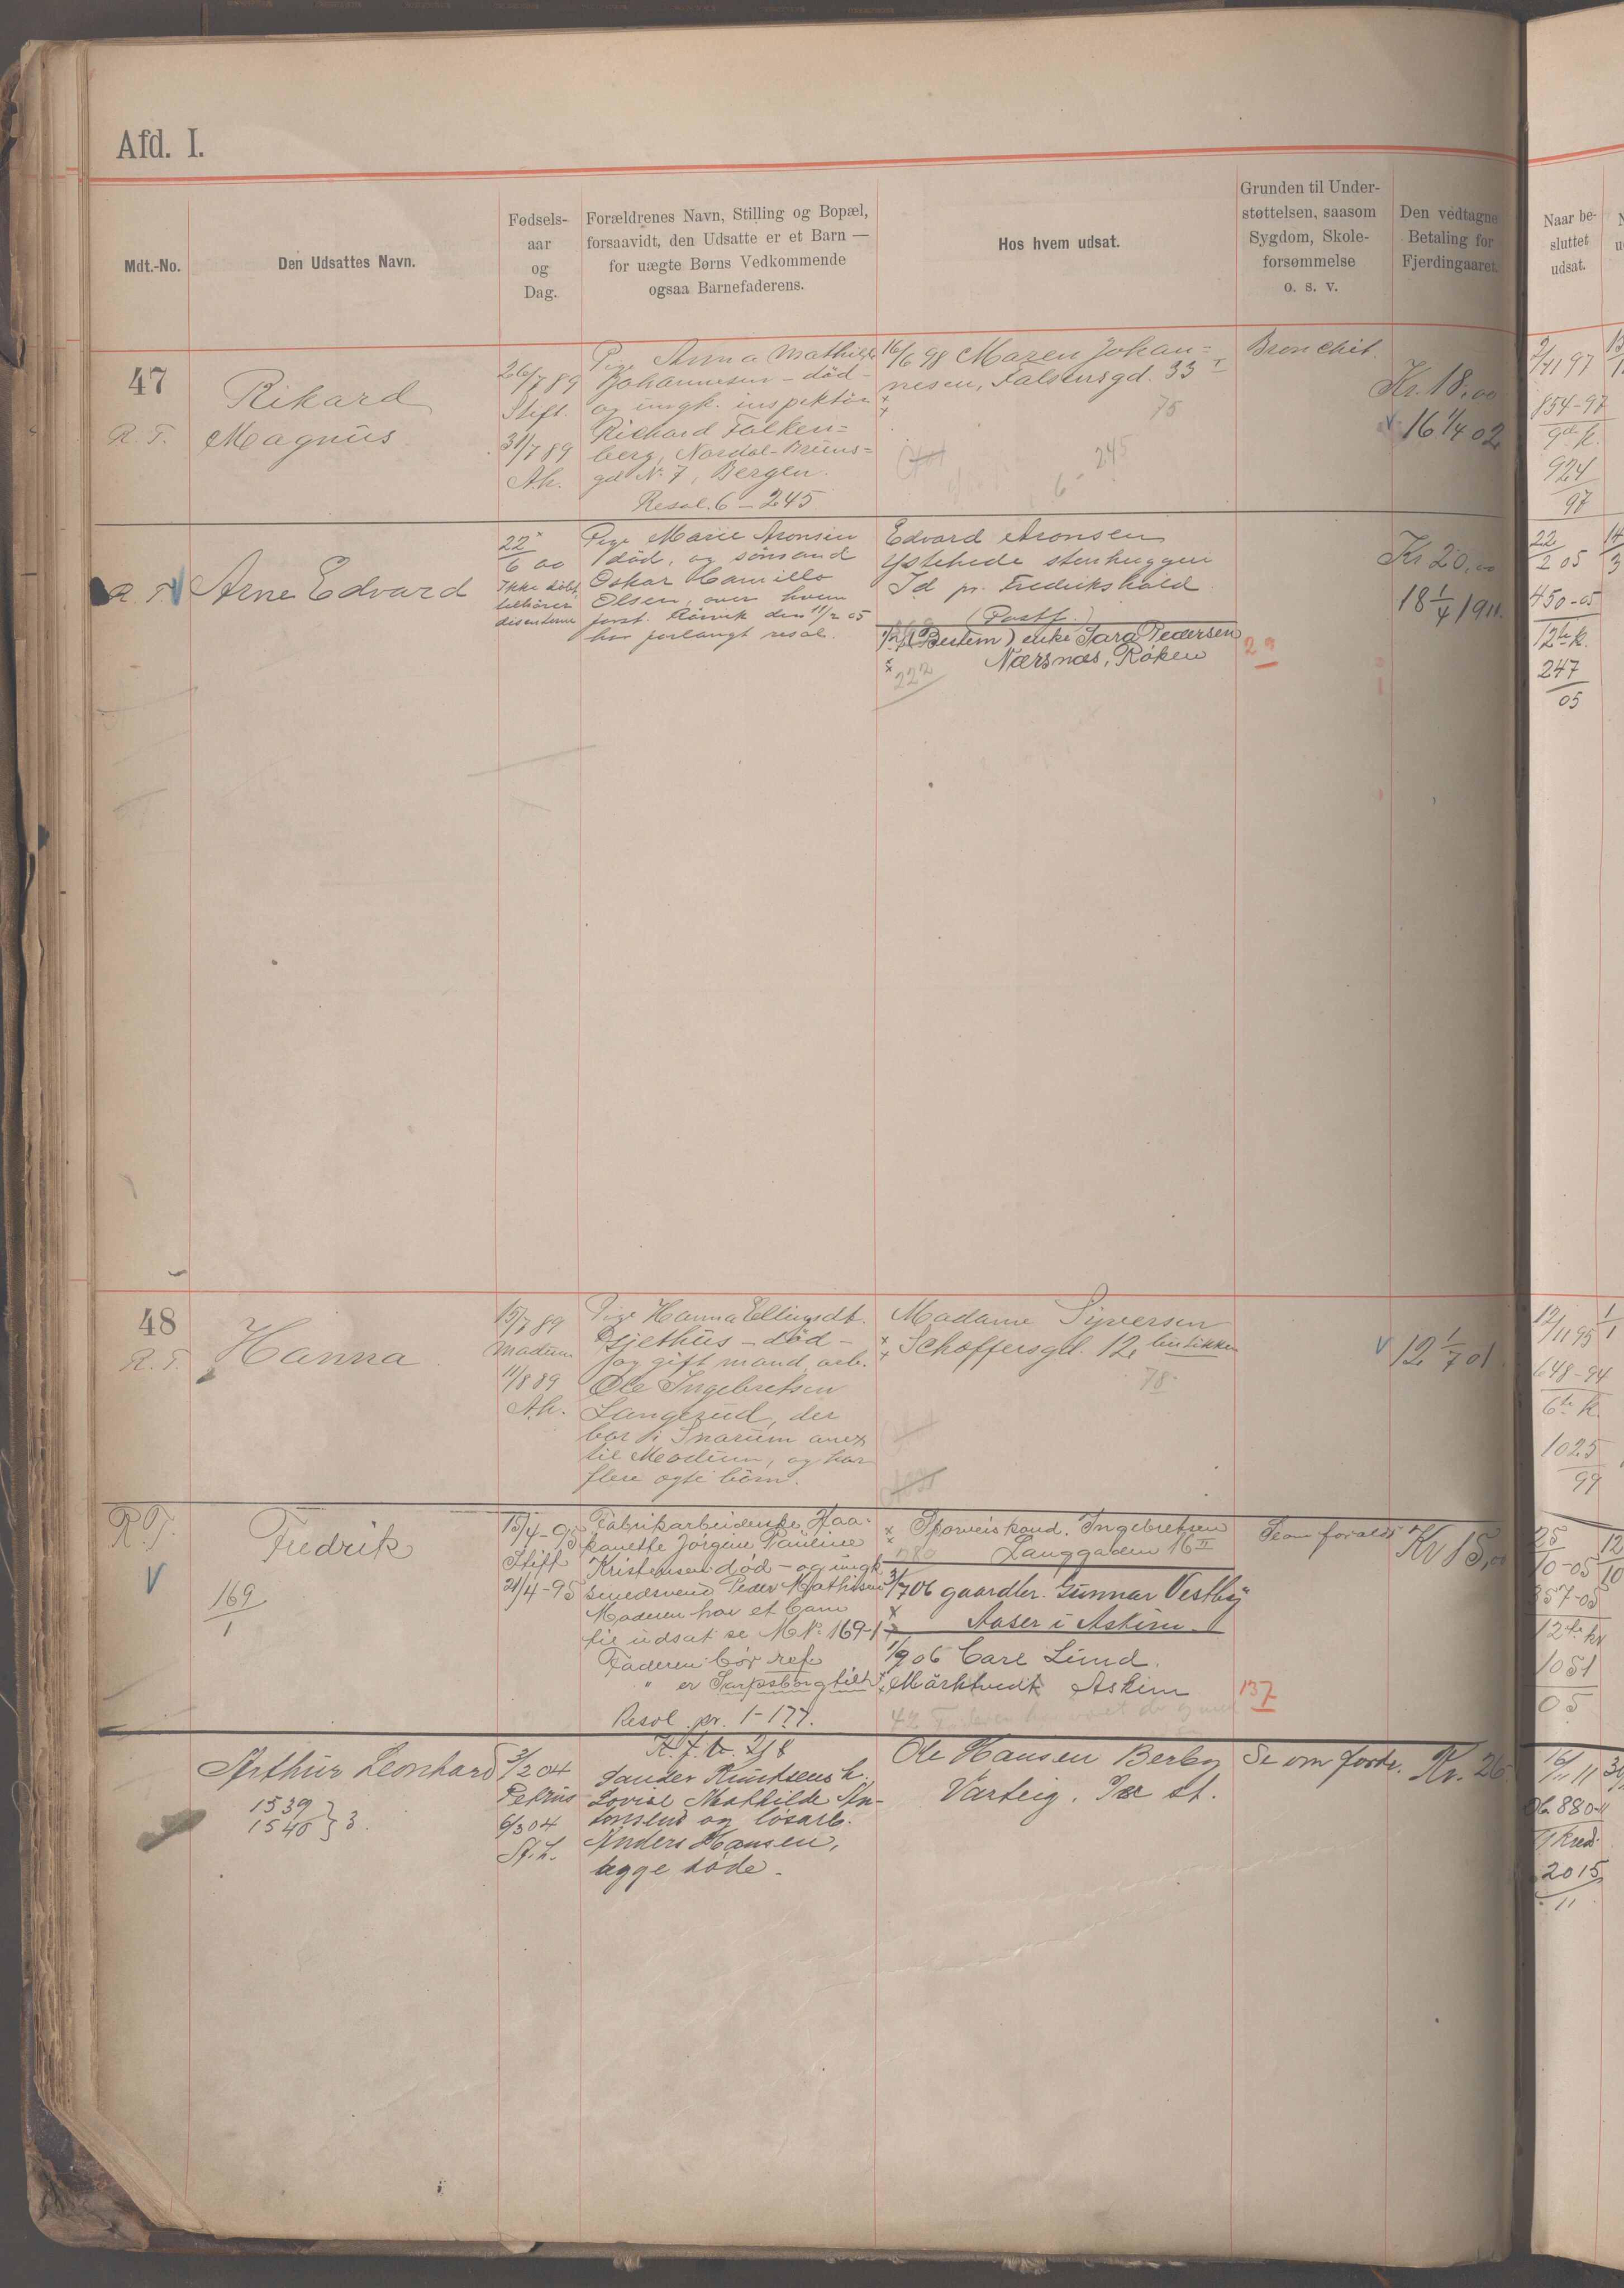 Afd. I.
Mdt.-No.
Den Udsattes Navn.
Fødsels-
aar
og
Dag.
Forældrenes Navn, Stilling og Bopæl,
forsaavidt, den Udsatte er et Barn —
for uægte Børns Vedkommende
ogsaa Barnefaderens.
Hos hvem udsat.
Grunden til Under-
støttelsen, saasom
Sygdom, Skole-
forsømmelse
o. s. v.
Den vedtagne
Betaling for
Fjerdingaaret.
Naar be-
sluttet
udsat.
47
R. T.
Rikard
Magnus
26/7 89
Stift.
31/7 89
A.k.
Pige Anna Mathilde
Johannesen – död –
og ungk. inspektör
Richard Falken=
berg, Nordal-Bruns=
gd N. 7, Bergen.
Resol. 6 – 245
16/6 98 Maren Johan=
nesen, Falsensgd. 33 I
75
245
6
Bronchit.
Kr. 18,00
V 16 1/4 02
2/11 97
854-97
9de k.
924
97
R. T. V
Arne Edvard
22
6 00
Ikke döbt
tilhörer
disenterne
Pige Marie Aronsen
död, og sömand
Oskar Camillo
Olsen, over hvem
forst. Rönvik den 11/2 05
har forlangt resol.
Edvard Aronsen
Ystehede stenhuggeri
Id pr. Fredrikshald
(Postf.)
(Bestem) enke Sara Pedersen
Nærsnæs, Röken
222
29
Kr 20,00
18 1/4 1911.
22
2 05
450-05
12te k.
247
05
48
R. T.
Hanna
15/7 89
Modum
11/8 89
A.k.
Pige Hanna Ellingsdt.
Gjethus – död –
og gift mand, arb.
Ole Ingebretsen
Langerud, der
bor i Snarum anex
til Modum, og har
flere ægte börn.
Madame Syversen
Schoffersgd. 12, butikken
78
V 12 1/7 01.
12/11 95
648-94
6te k
1025
99
R. T.
V
Fredrik
169
1
15/4-95
Stift
21/4-95
Fabrikarbeiderske Haa=
kanette Jörgine Pauline
Kristensen död – og ungk.
smedsvend Peder Mathisen
Moderen har et barn
til udsat se M.No. 169-1
Faderen bör ref.
" er Sarpsborg tilh.
Resol. pr. 1-177.
Sporveiskond. Ingebretsen
Langgaden 16 II
780
3/7 06 gaardbr. Gunnar Vestby
Aaser i Askim
1/9 06 Carl Lund.
Mörktvedt Askim
137
Som foræld
Kr 15,00
25
10-05
357-05
12te kr
1051
05
Arthur Leonhard
1539
1540 } 3.
3/2 04
Petrus
6/3 04
St. L.
Sander Knutsens h.
Lovise Mathilde An-
tonsens og lösarb.
Anders Hansen,
begge döde.
Ole Hansen Berby
Varteig. Ise st.
Se om foræ.
Kr. 26
16/11 11
Ob. 880-11
2015
11